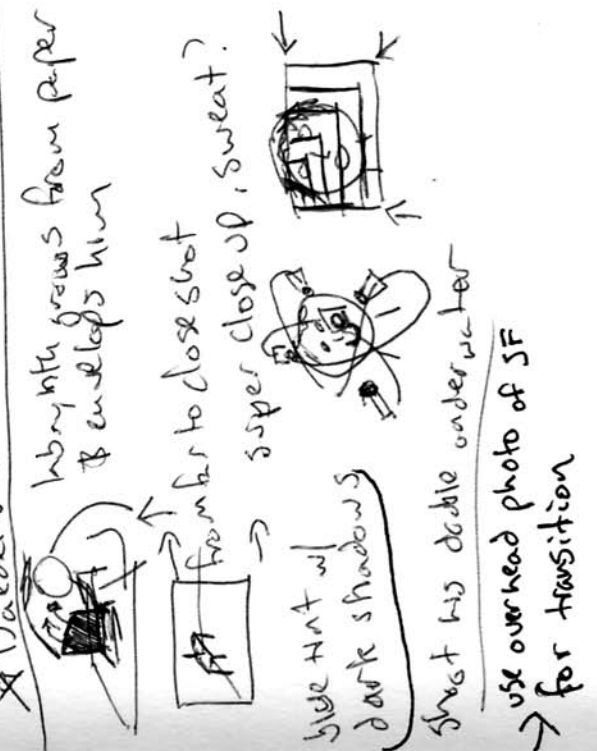 labrynth grows from paper
& envelops him
from far to close shot
super close up, sweat?
blue tint w/
dark shadows
Shoot his double underwater
use overhead photo of SF
for transition